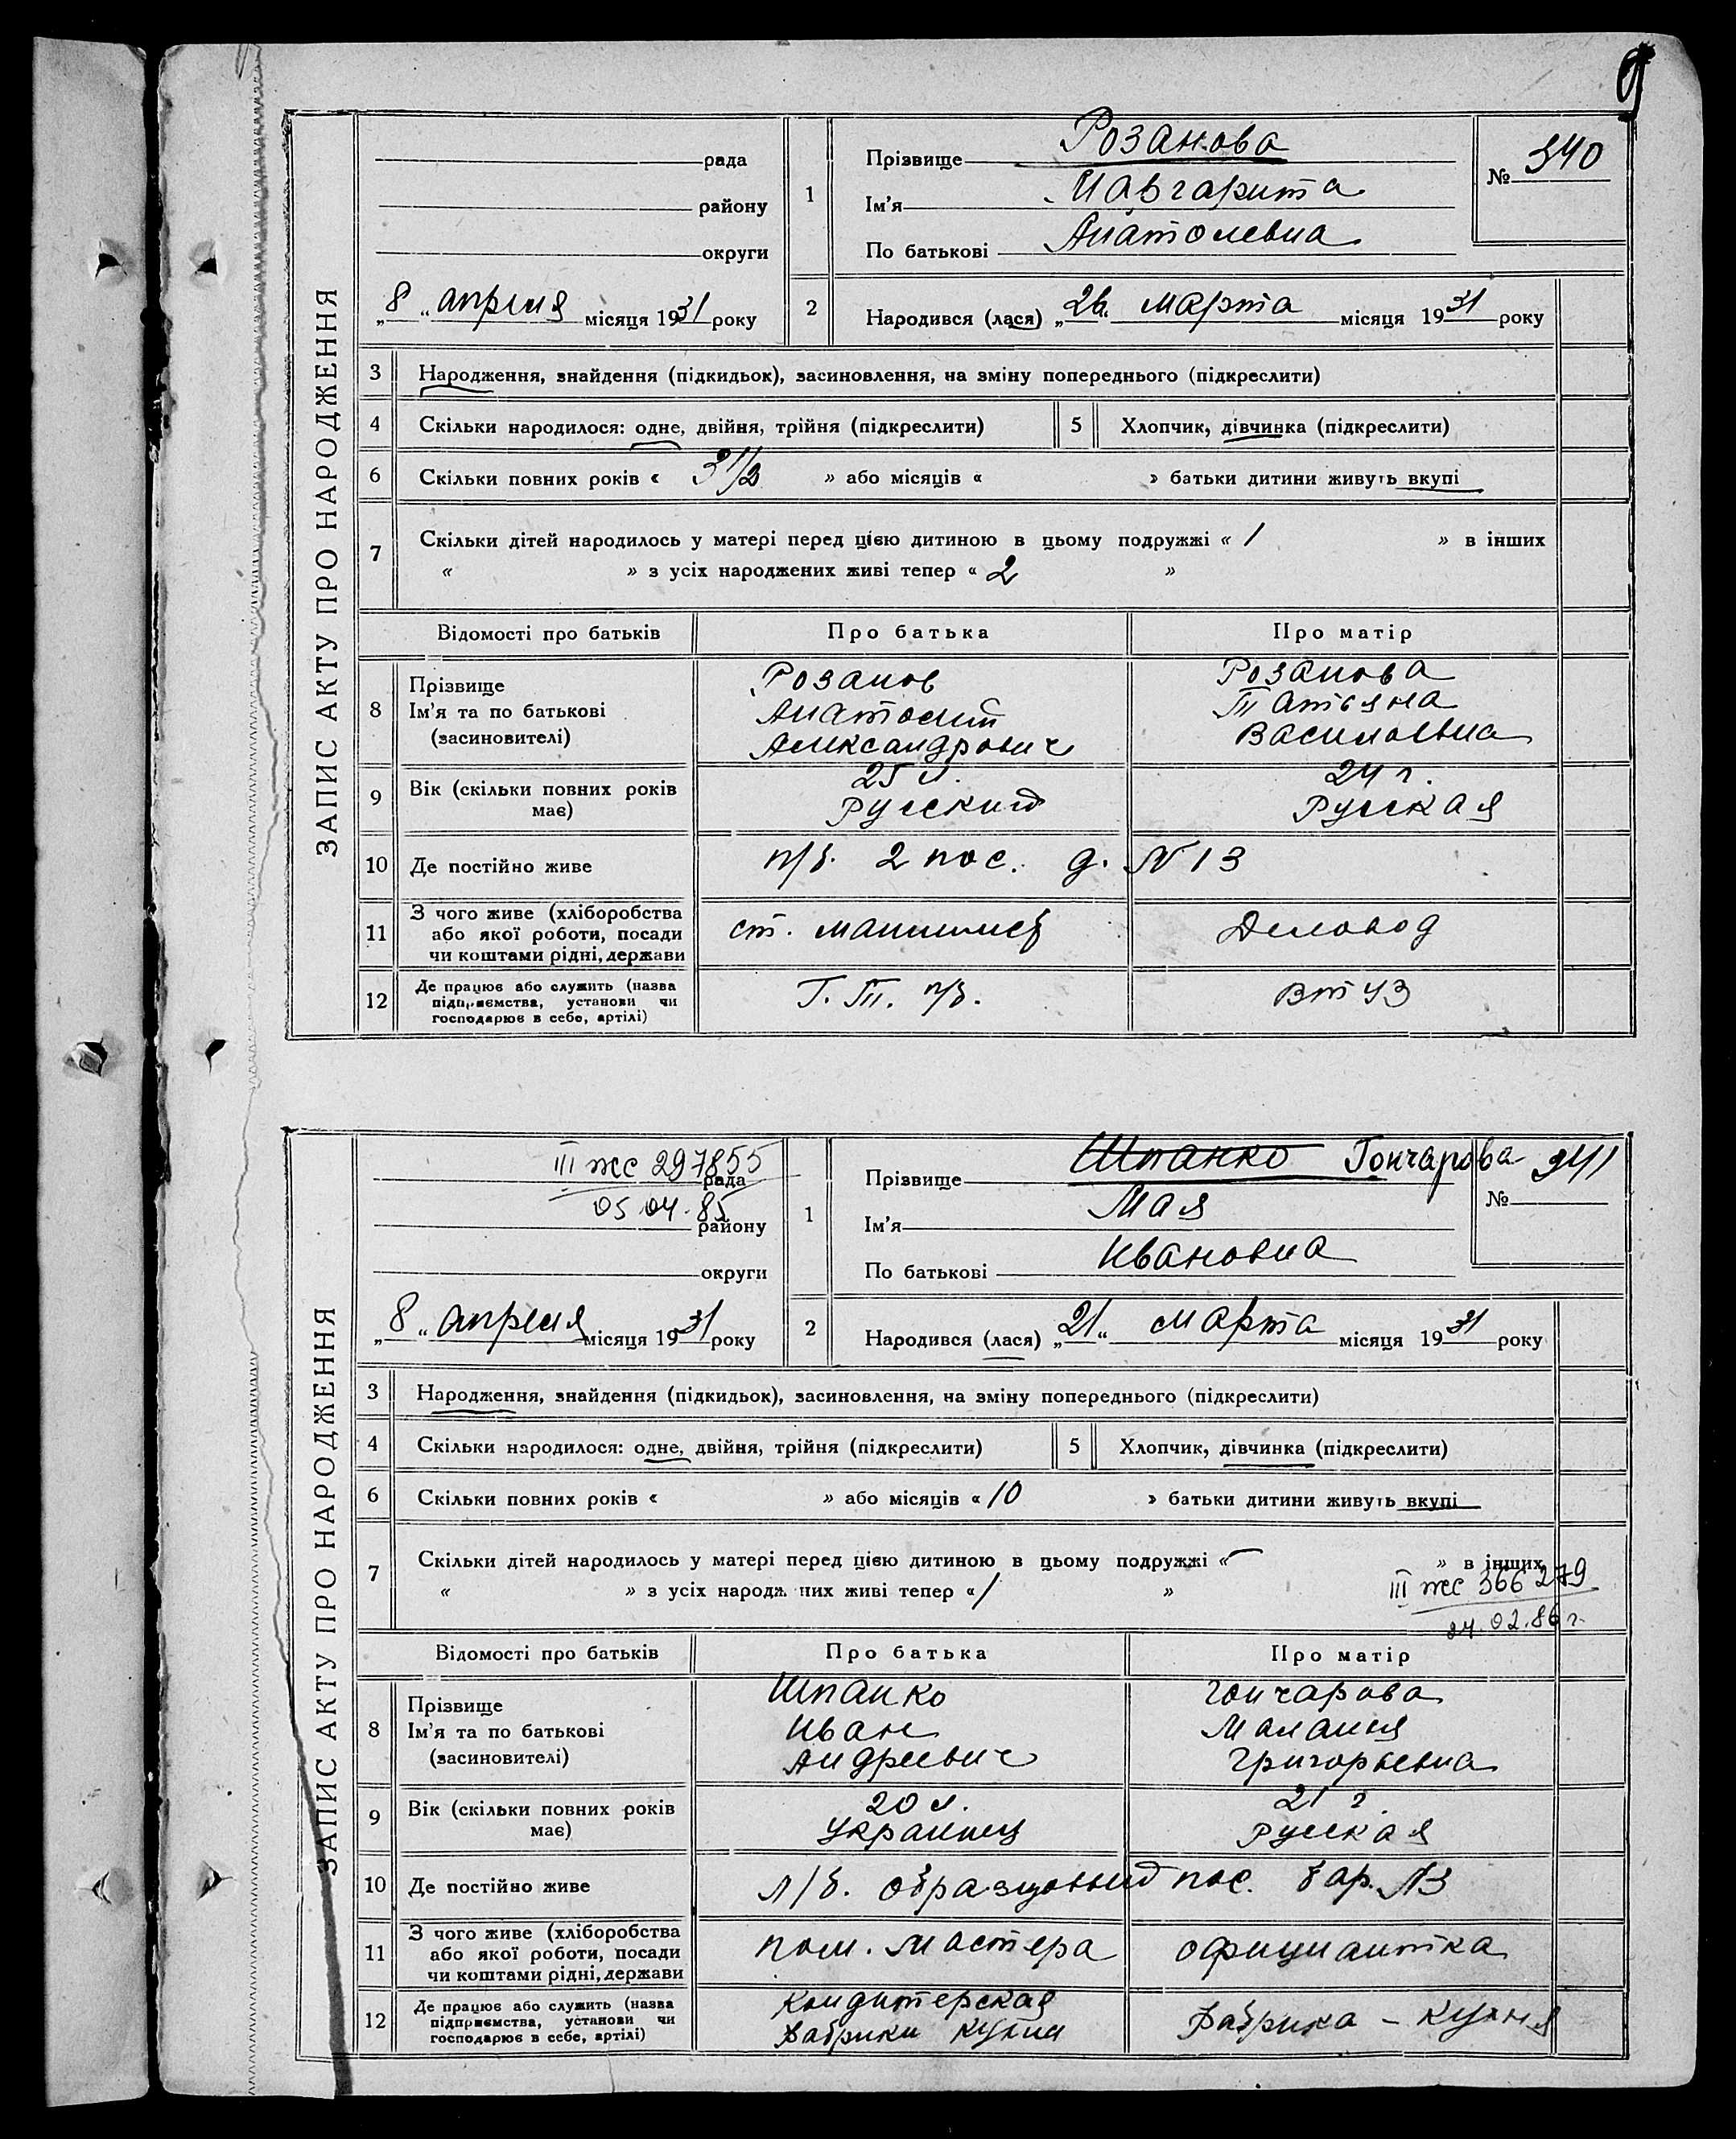 ЗАПИС АКТУ ПРО НАРОДЖЕННЯ
рада
району
округи
„8“ апреля місяця 1931 року
1
Прізвище Розанова
Ім'я Маргарита
По батькові Анатолевна
№ 340
2
Народився (лася) „26“ марта місяця 1931 року
3 Народження, знайдення (підкидьок), засиновлення, на зміну попереднього (підкреслити)
4 Скільки народилося: одне, двійня, трійня (підкреслити) 5 Хлопчик, дівчинка (підкреслити)
6 Скільки повних років « 3 1/2 » або місяців « » батьки дитини живуть вкупі
7 Скільки дітей народилось у матері перед цією дитиною в цьому подружжі « 1 » в інших
« » з усіх народжених живі тепер « 2 »
Відомості про батьків Про батька Про матір
8 Прізвище Розанов Розанова
Ім'я та по батькові Анатолий Татьяна
(засиновителі) Александрович Василевна
9 Вік (скільки повних років має) 25 л. 24 г.
Русский Русская
10 Де постійно живе п/б. 2 пос. д. № 13
11 З чого живе (хліборобства
або якої роботи, посади
чи коштами рідні, держави
ст. машинист Деловод
12 Де працює або служить (назва
підприємства, установи чи
господарює в себе, артілі)
Г. П. п/б. ВТУЗ
ЗАПИС АКТУ ПРО НАРОДЖЕННЯ
III жс 297855
рада
05 04. 85
району
округи
„8“ апреля місяця 1931 року
1
Прізвище Шпанко Гончарова
Ім'я Мая
По батькові Ивановна
№ 341
2
Народився (лася) „21“ марта місяця 1931 року
3 Народження, знайдення (підкидьок), засиновлення, на зміну попереднього (підкреслити)
4 Скільки народилося: одне, двійня, трійня (підкреслити) 5 Хлопчик, дівчинка (підкреслити)
6 Скільки повних років « » або місяців « 10 » батьки дитини живуть вкупі
7 Скільки дітей народилось у матері перед цією дитиною в цьому подружжі « — » в інших
« » з усіх народжених живі тепер « 1 »
III жс 366279
24.02.86 г.
Відомості про батьків Про батька Про матір
8 Прізвище Шпанко Гончарова
Ім'я та по батькові Иван Малания
(засиновителі) Андреевич Григорьевна
9 Вік (скільки повних років має) 20 л. 21 г.
Украинец Русская
10 Де постійно живе л/б. образцовый пос. бар. №3
11 З чого живе (хліборобства
або якої роботи, посади
чи коштами рідні, держави
пом. мастера официантка
12 Де працює або служить (назва
підприємства, установи чи
господарює в себе, артілі)
Кондитерская
Фабрики кухни Фабрика – кухня